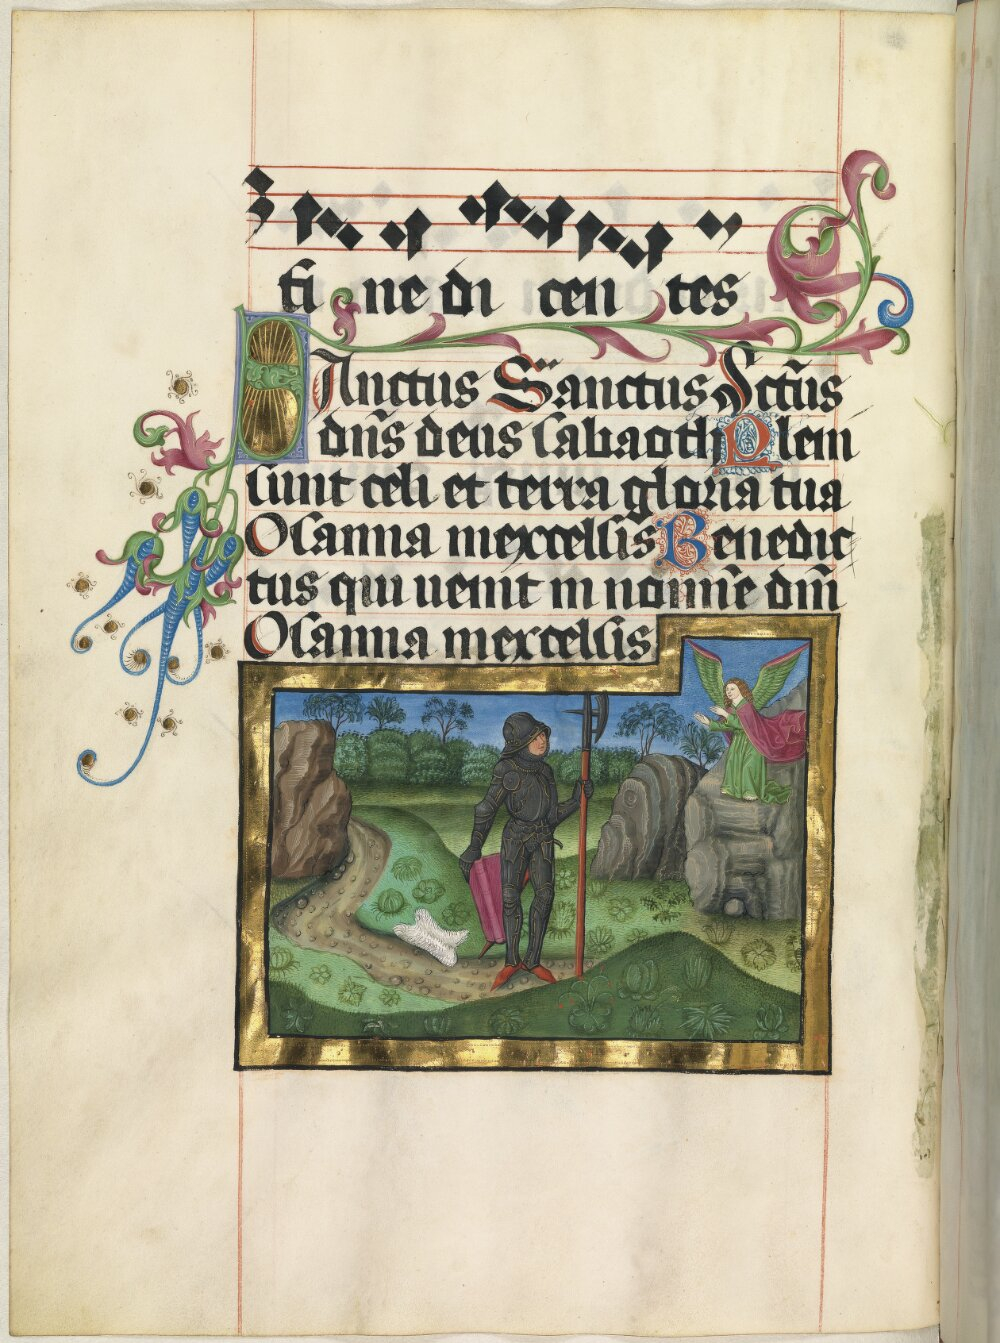 fi ne di cen tes
Sanctus Sanctus Sctūs
dn̄s deus sabaoth Plēni
sunt celi et terra gloria tua
Osanna inexcelsis Benedic
tus qui uenit in nomīe dn̄i
Osanna inexcelsis